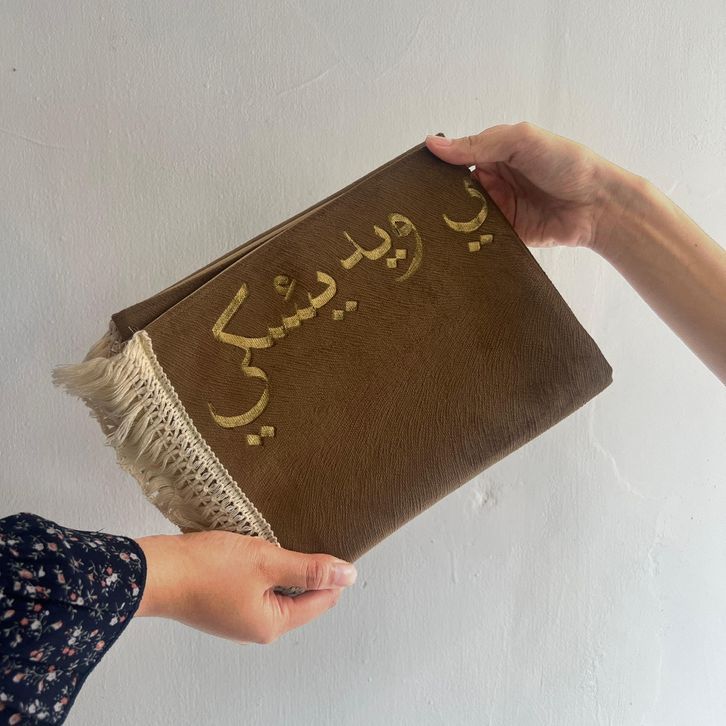 ي ويد يشكي